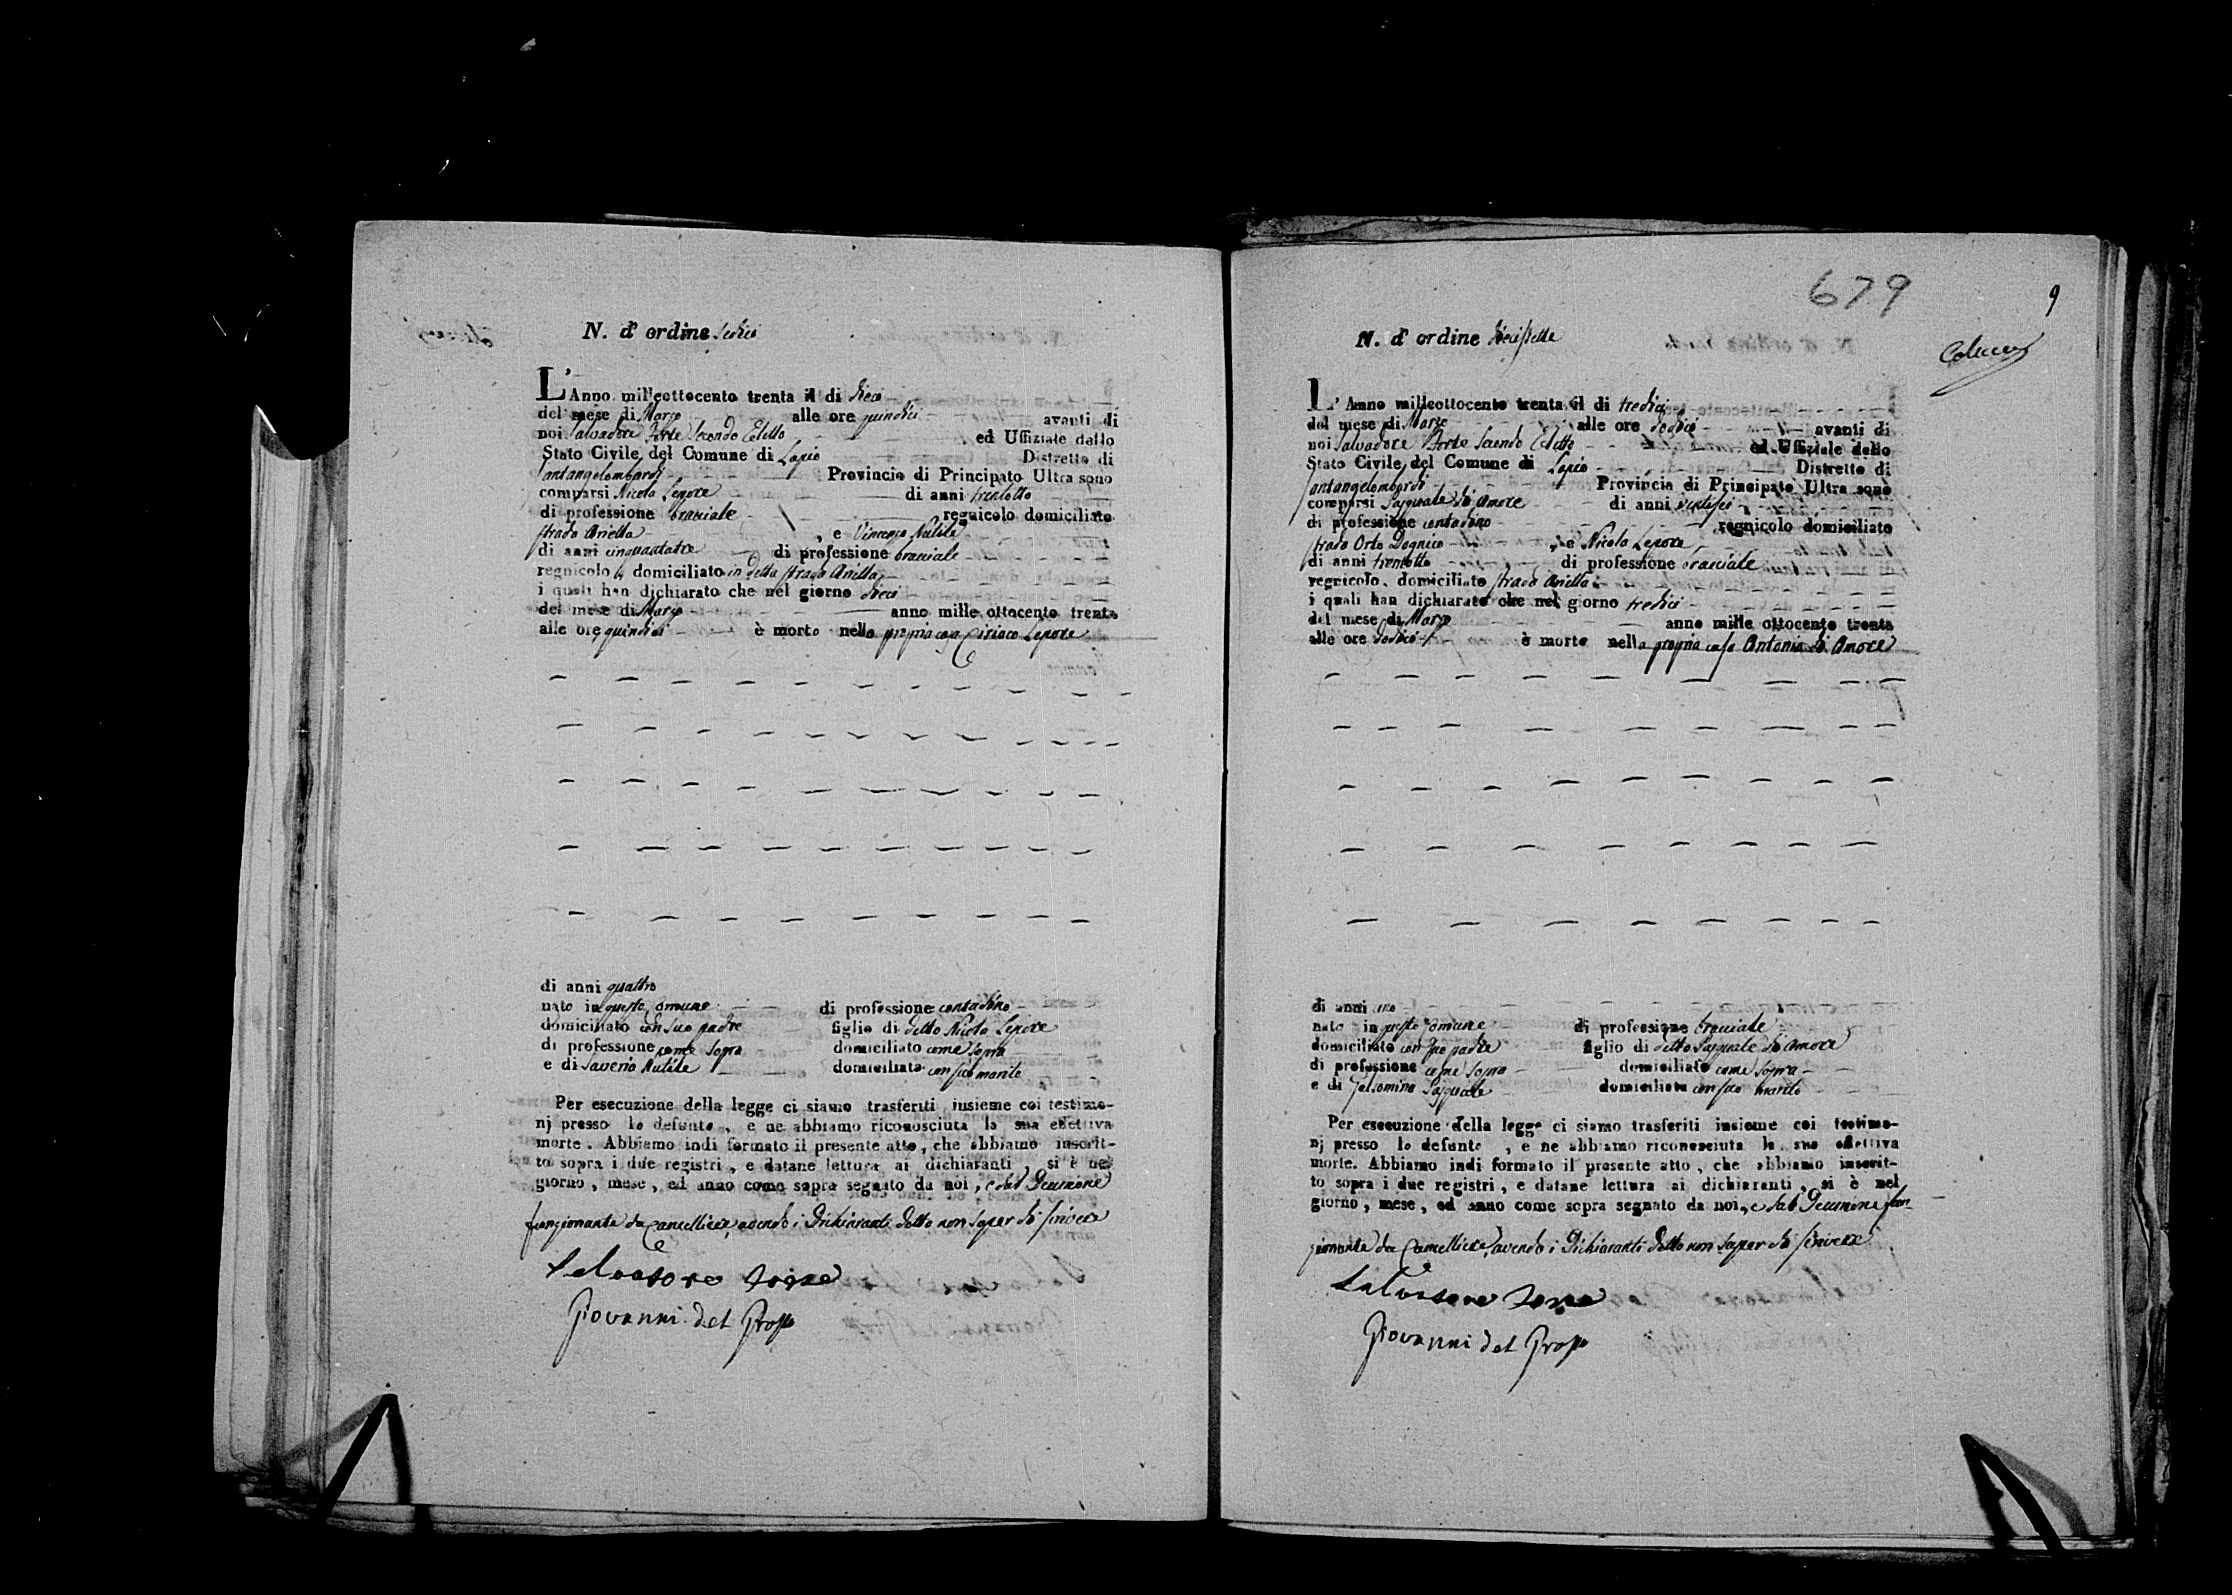 N. d' ordine Sedici
L'Anno milleottocento trenta il di dieci
del mese di Marzo alle ore quindici avanti di
noi Salvadore Forte Secondo Eletto ed Uffiziale dello
Stato Civile del Comune di Lapio Distretto di
Santangelolombardi Provincia di Principato Ultra sono
comparsi Nicola Lepore di anni trentotto
di professione bracciale regnicolo domiciliato
strada Ariella , e Vincenzo
di anni cinquantatre di professione bracciale
regnicolo domiciliato in detta strada Ariella
i quali han dichiarato che nel giorno dieci
del mese di Marzo anno mille ottocento trenta
alle ore quindici è morto nella propria casa Ciriaco Lepore
di anni quattro
nato in questo Comune di professione contadino
domiciliato con suo padre figlio di detto Nicola Lepore
di professione come sopra domiciliato come sopra
e di Saveria domiciliata con suo marito
Per esecuzione della legge ci siamo trasferiti insieme coi testimo-
nj presso lo defunto , e ne abbiamo riconosciuta la sua effettiva
morte . Abbiamo indi formato il presente atto , che abbiamo inscrit-
to sopra i due registri , e datane lettura ai dichiaranti , si è nel
giorno , mese , ed anno come sopra segnato da noi , e dal Decurione
funzionante da Cancelliere, avendo i Dichiaranti detto non saper di scrivere
Salvatore Forte
Giovanni del Grosso
679
9
N. d' ordine diecisette
L' Anno milleottocento trenta il di tredici
del mese di Marzo alle ore dodici avanti di
noi Salvadore Forte Secondo Eletto ed Uffiziale dello
Stato Civile del Comune di Lapio Distretto di
Santangelolombardi Provincia di Principato Ultra sono
comparsi Pasquale di Amore di anni ventisei
di professione contadino regnicolo domiciliato
strada Orto Dognico , e Nicola Lepore
di anni trentotto di professione bracciale
regnicolo domiciliato strada Ariella
i quali han dichiarato che nel giorno tredici
del mese di Marzo anno mille ottocento trenta
alle ore dodici è morto nella propria casa Antonia di Amore
di anni uno
nato in questo Comune di professione bracciale
domiciliato con suo padre figlio di detto Pasquale di Amore
di professione come sopra domiciliato come sopra
e di Gelsomina Pasquale domiciliata con suo marito
Per esecuzione della legge ci siamo trasferiti insieme coi testimo-
nj presso lo defunto , e ne abbiamo riconosciuta la sua effettiva
morte. Abbiamo indi formato il presente atto , che abbiamo inscrit-
to sopra i due registri , e datane lettura ai dichiaranti , si è nel
giorno , mese , ed anno come sopra segnato da noi, e dal Decurione fun-
zionante da Cancelliere, avendo i Dichiaranti detto non saper di scrivere
Salvatore Forte
Giovanni del Grosso